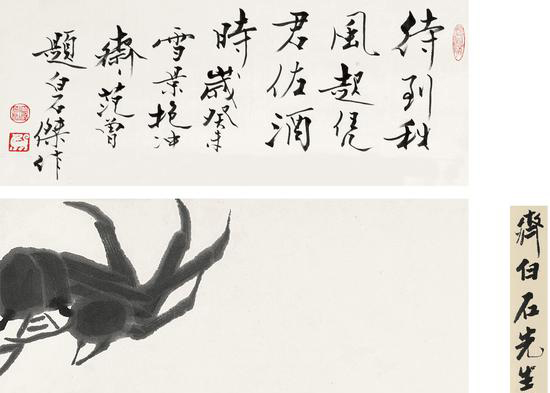 待到秋
風起凭
君佐酒
時歲癸未
雪景抱冲
齋、范曾
題白石傑作
齊白石先生